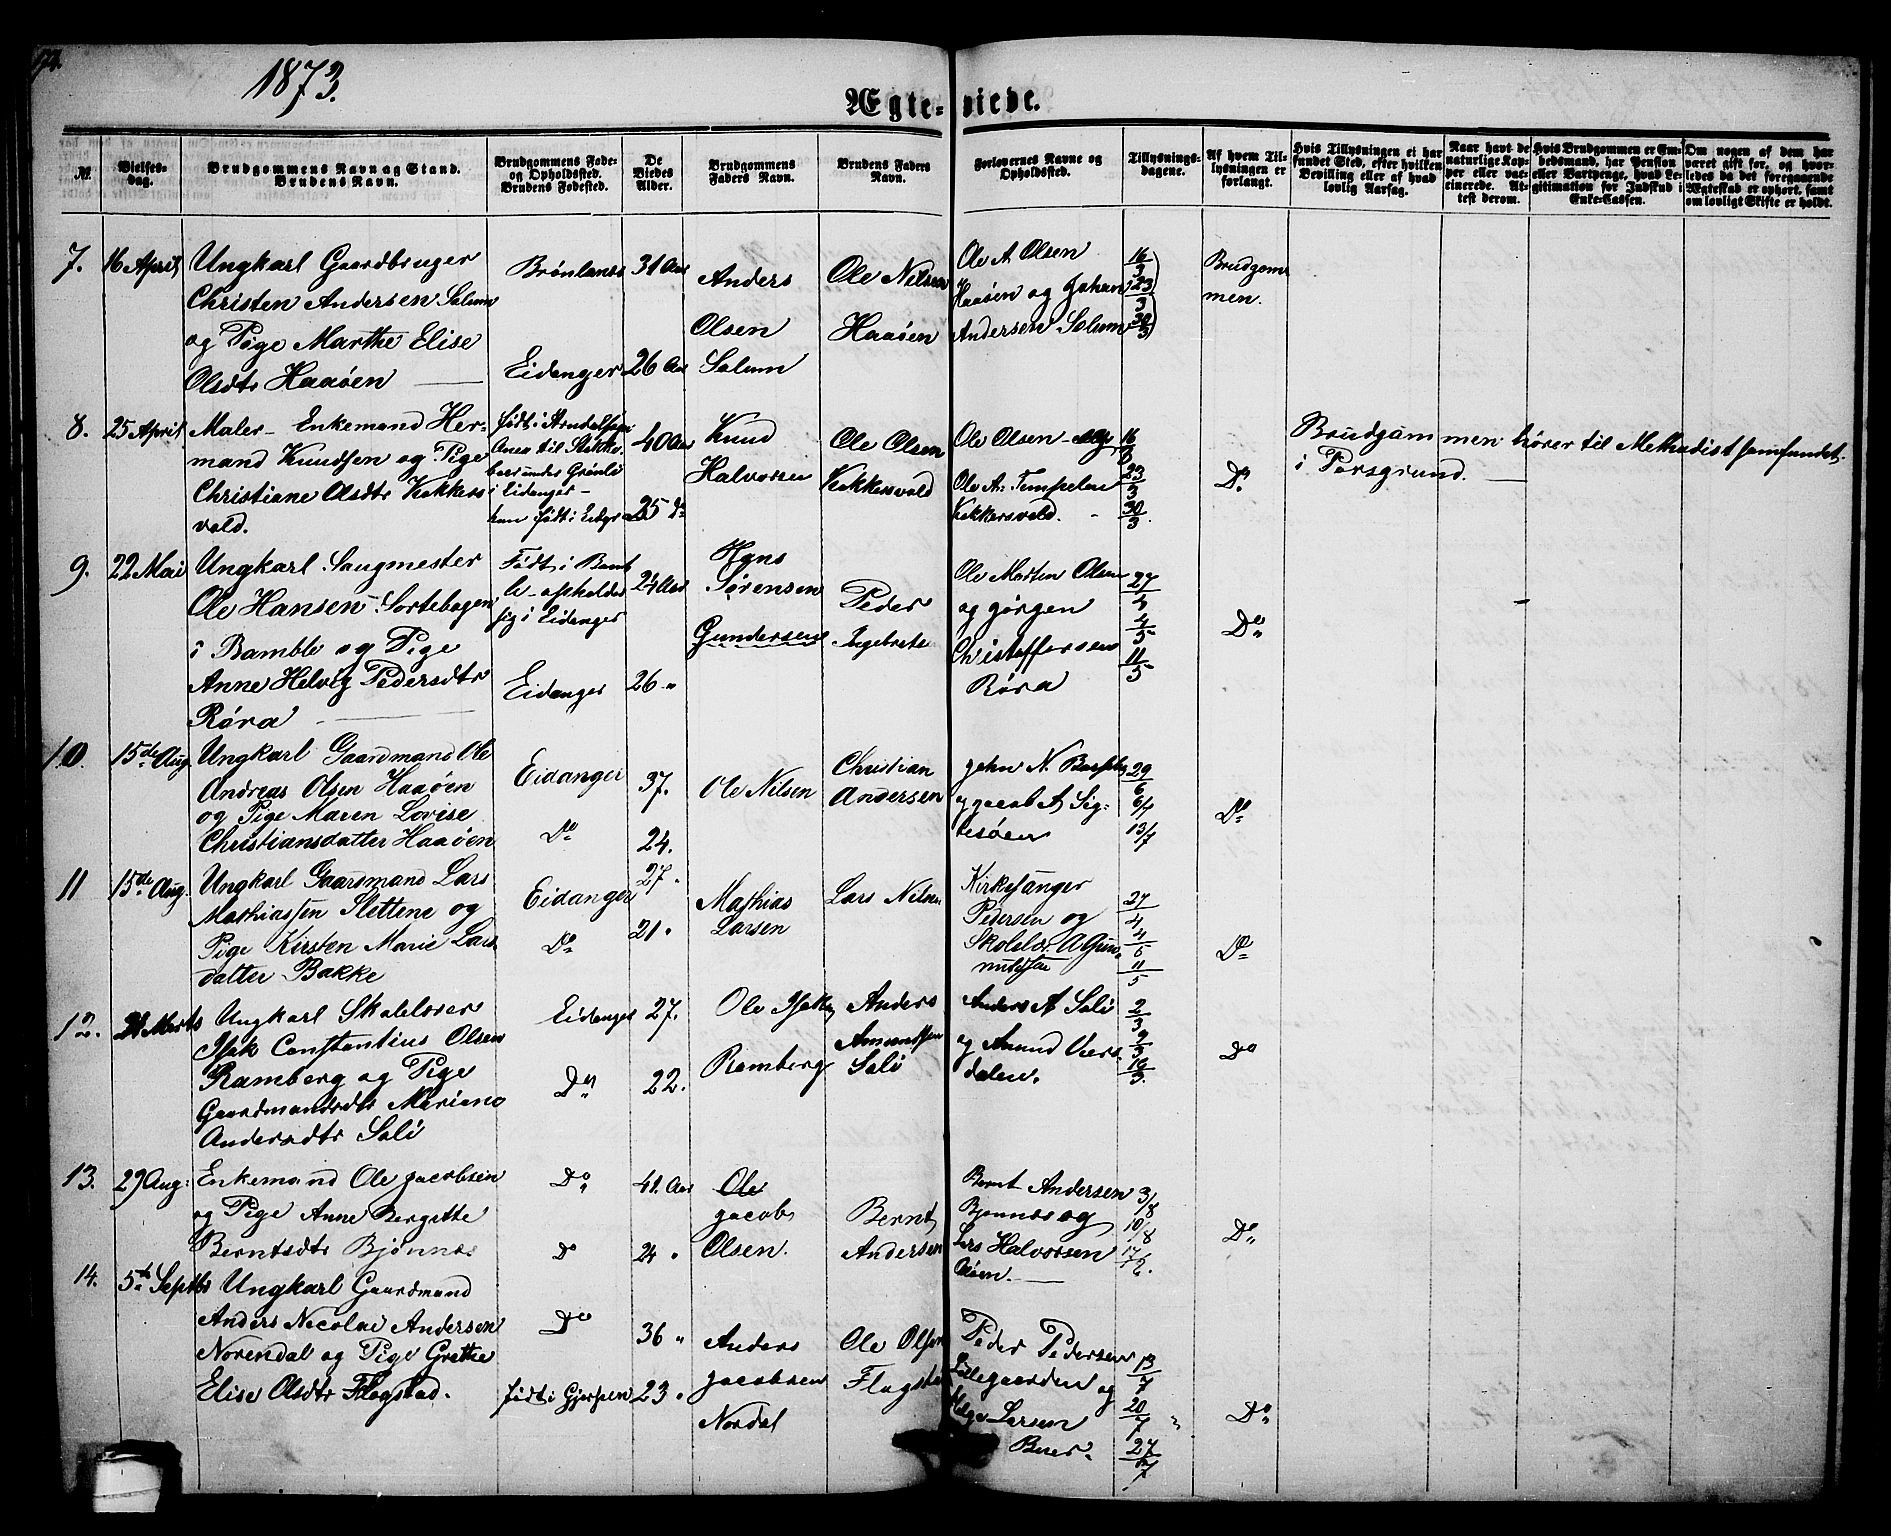 1873.
Ægteviede.
№.
Vielses-
dag.
Brudgommens Navn og Stand.
Brudens Navn.
Brudgommens Føde-
og Opholdssted.
Brudens Fødested.
De
Viedes
Alder.
Brudgommens
Faders Navn.
Brudens Faders
Navn.
Forlovernes Navne og
Opholdssted.
Tillysnings-
dagene.
Af hvem Til-
lysningen er
forlangt.
Hvis Tillysningen ei har
fundet Sted, efter hvilken
Bevilling eller af hvad
lovlig Aarsag.
Naar havt de
naturlige Kop-
per eller vac-
cinerede. At-
test derom.
Hvis Brudgommen er Em-
bedsmand, har Pension
eller Vartpenge, hvad Le-
gitimation for Indskud i
Enke-Cassen.
Om nogen af dem har
været gift før, og hvor-
ledes da det foregaaende
Ægteskab er ophørt, samt
om lovligt Skifte er holdt.
7. 16 April
Ungkarl Gaardbruger
Christen Andersen Solum
og Pige Marthe Elise
Olsdtr Haaøen
Brønlanes
Eidanger
31 Aar
26 Aar
Anders
Olsen
Solum
Ole Nilsen
Haaøen
Ole A. Olsen
Haaøen og Johan
Andersen Solum
16/3
23/3
30/3
Brudgom
men.
8. 25 April
Maler - Enkemand Her-
mand Knudsen og Pige
Christiane Olsdtr Kokkers
vold.
født i Arendal
i Eidanger -
40 Aar
25 do
Knud
Halvorsen
Ole Olsen
Kokkersvold
Ole Olsen
Ole A. Tempelen
Kokkersvold.
16/3
23/3
30/3
Do
Brudgommen hører til Methodistsamfundet
i Porsgrund.
9. 22 Mai
Ungkarl Saugmester
Ole Hansen Sortebogen
i Bamble og Pige
Anne Helvig Pedersdtr
Røra
Født i Bamb
le - opholder
sig i Eidanger
Eidanger
24 Aar
26 "
Hans
Sørensen
Gundersen
Peder
Ingebrets
Ole Morten Olsen
og Jørgen
Christoffersen
Røra
27/4
4/5
11/5
Do
10. 15de Aug.
Ungkarl Gaardmand Ole
Andreas Olsen Haaøen
og Pige Maren Lovise
Christiansdatter Haaøen
Eidanger
Do
37.
24.
Ole Nilsen
Christian
Andersen
John N.
og Jacob A. Sig-
tesøen
29/6
6/7
13/7
Do
11 15de Aug.
Ungkarl Gaardmand Lars
Mathiassen Slettene og
Pige Kirsten Marie Lars
datter Bakke
Eidanger
Do
27.
21.
Mathias
Larsen
Lars Nilsen
Kirkesanger
Pedersen og
Skolelær. A Gun-
27/4
4/5
11/5
Do
12. Marts
Ungkarl Skolelærer
Isak Constantius Olsen
Ramberg og Pige
Gaardmandsdtr Mariane
Andersdtr Sali
Eidanger
Do
27.
22.
Ole Isaks
Ramberg
Anders
Amundsen
Sali
Anders A Sali
og Amund Vers
dalen.
2/3
9/3
16/3.
Do
13. 29 Aug:
Enkemand Ole Jacobsen
og Pige Anne Bergitte
Berntsdtr Bjønnes
Do
Do
41. Aar
24 "
Ole
Jacob
Olsen.
Bernt
Andersen
Bernt Andersen
Bjønnes og
Lars Halvorsen
3/8
10/8
17/8.
Do
14. 5te Septbr
Ungkarl Gaardmand
Anders Nicolai Andersen
Norendal og Pige Grethe
Elise Olsdtr Flogstad.
Do
født i Gjerpen
36 "
23 "
Anders
Jacobsen
Nordal
Ole Olsen
Flogsta
Peder Pedersen
Lillegaarden og
Larsen
13/7
20/7
27/7
Do